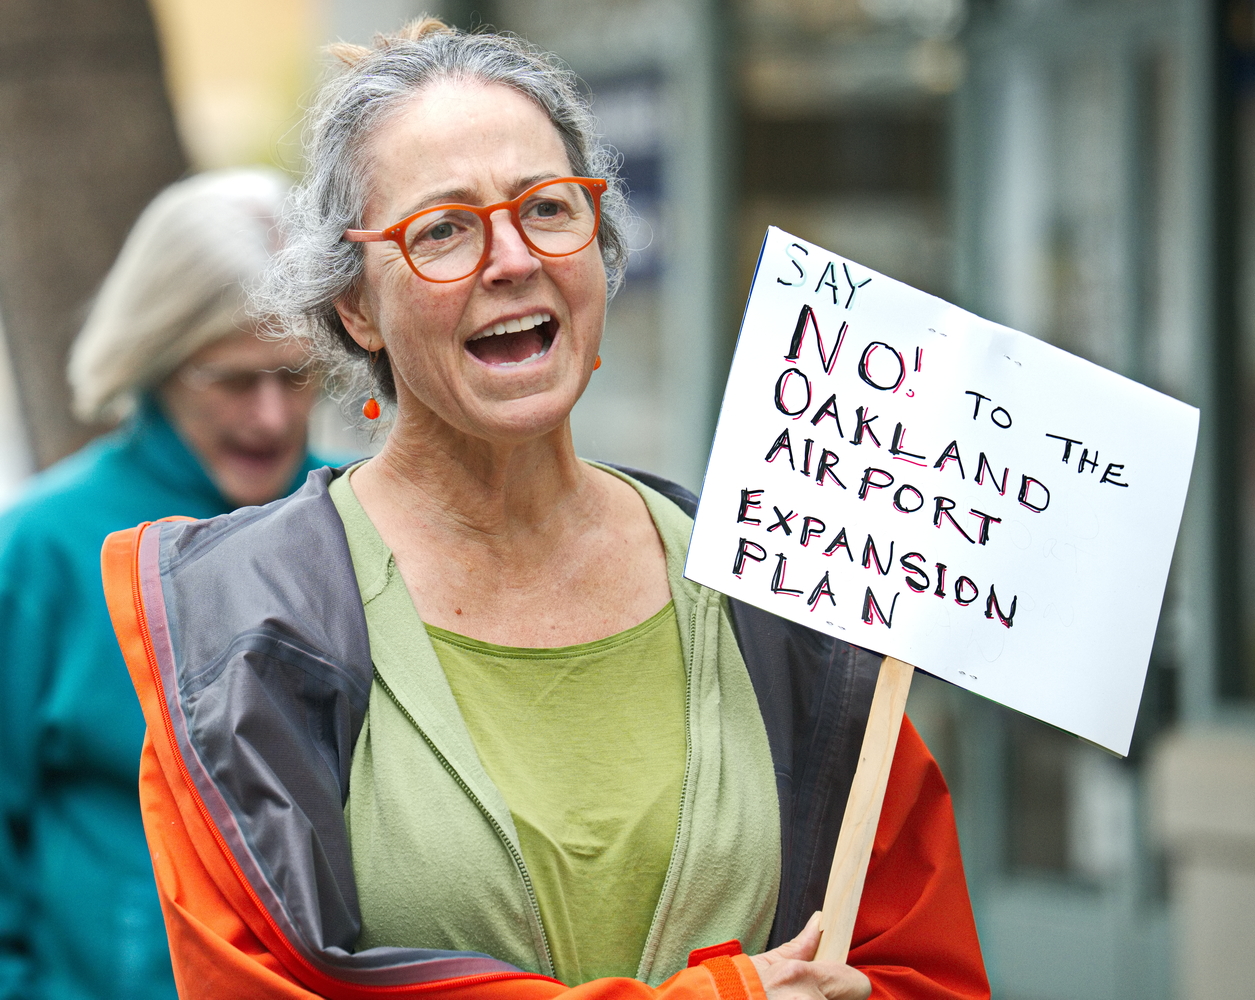 SAY
NO! TO THE
OAKLAND
AIRPORT
EXPANSION
PLAN